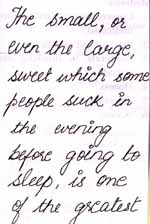 The small, or
even the large,
sweet which some
people suck in
the evening
before going to
sleep, is one
of the greatest